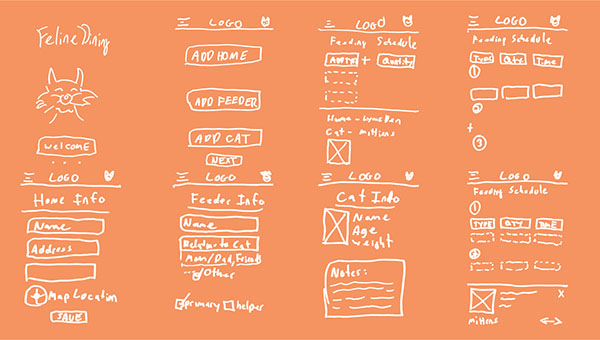 Feline Dining
WELCOME
LOGO
ADD HOME
ADD FEEDER
ADD CAT
NEXT
LOGO
Feeding Schedule
+ Quantity
Home -
Cat - mittens
LOGO
Feeding Schedule
Type Qty. Time
1
2
+
3
LOGO
Home Info
Name
Address
Map Location
SAVE
LOGO
Feeder Info
Name
Relation to Cat
Mom/Dad, Friends
Other
primary helper
LOGO
Cat Info
Name
Age
weight
Notes:
LOGO
Feeding Schedule
1
TYPE QTY TIME
2
X
mittens